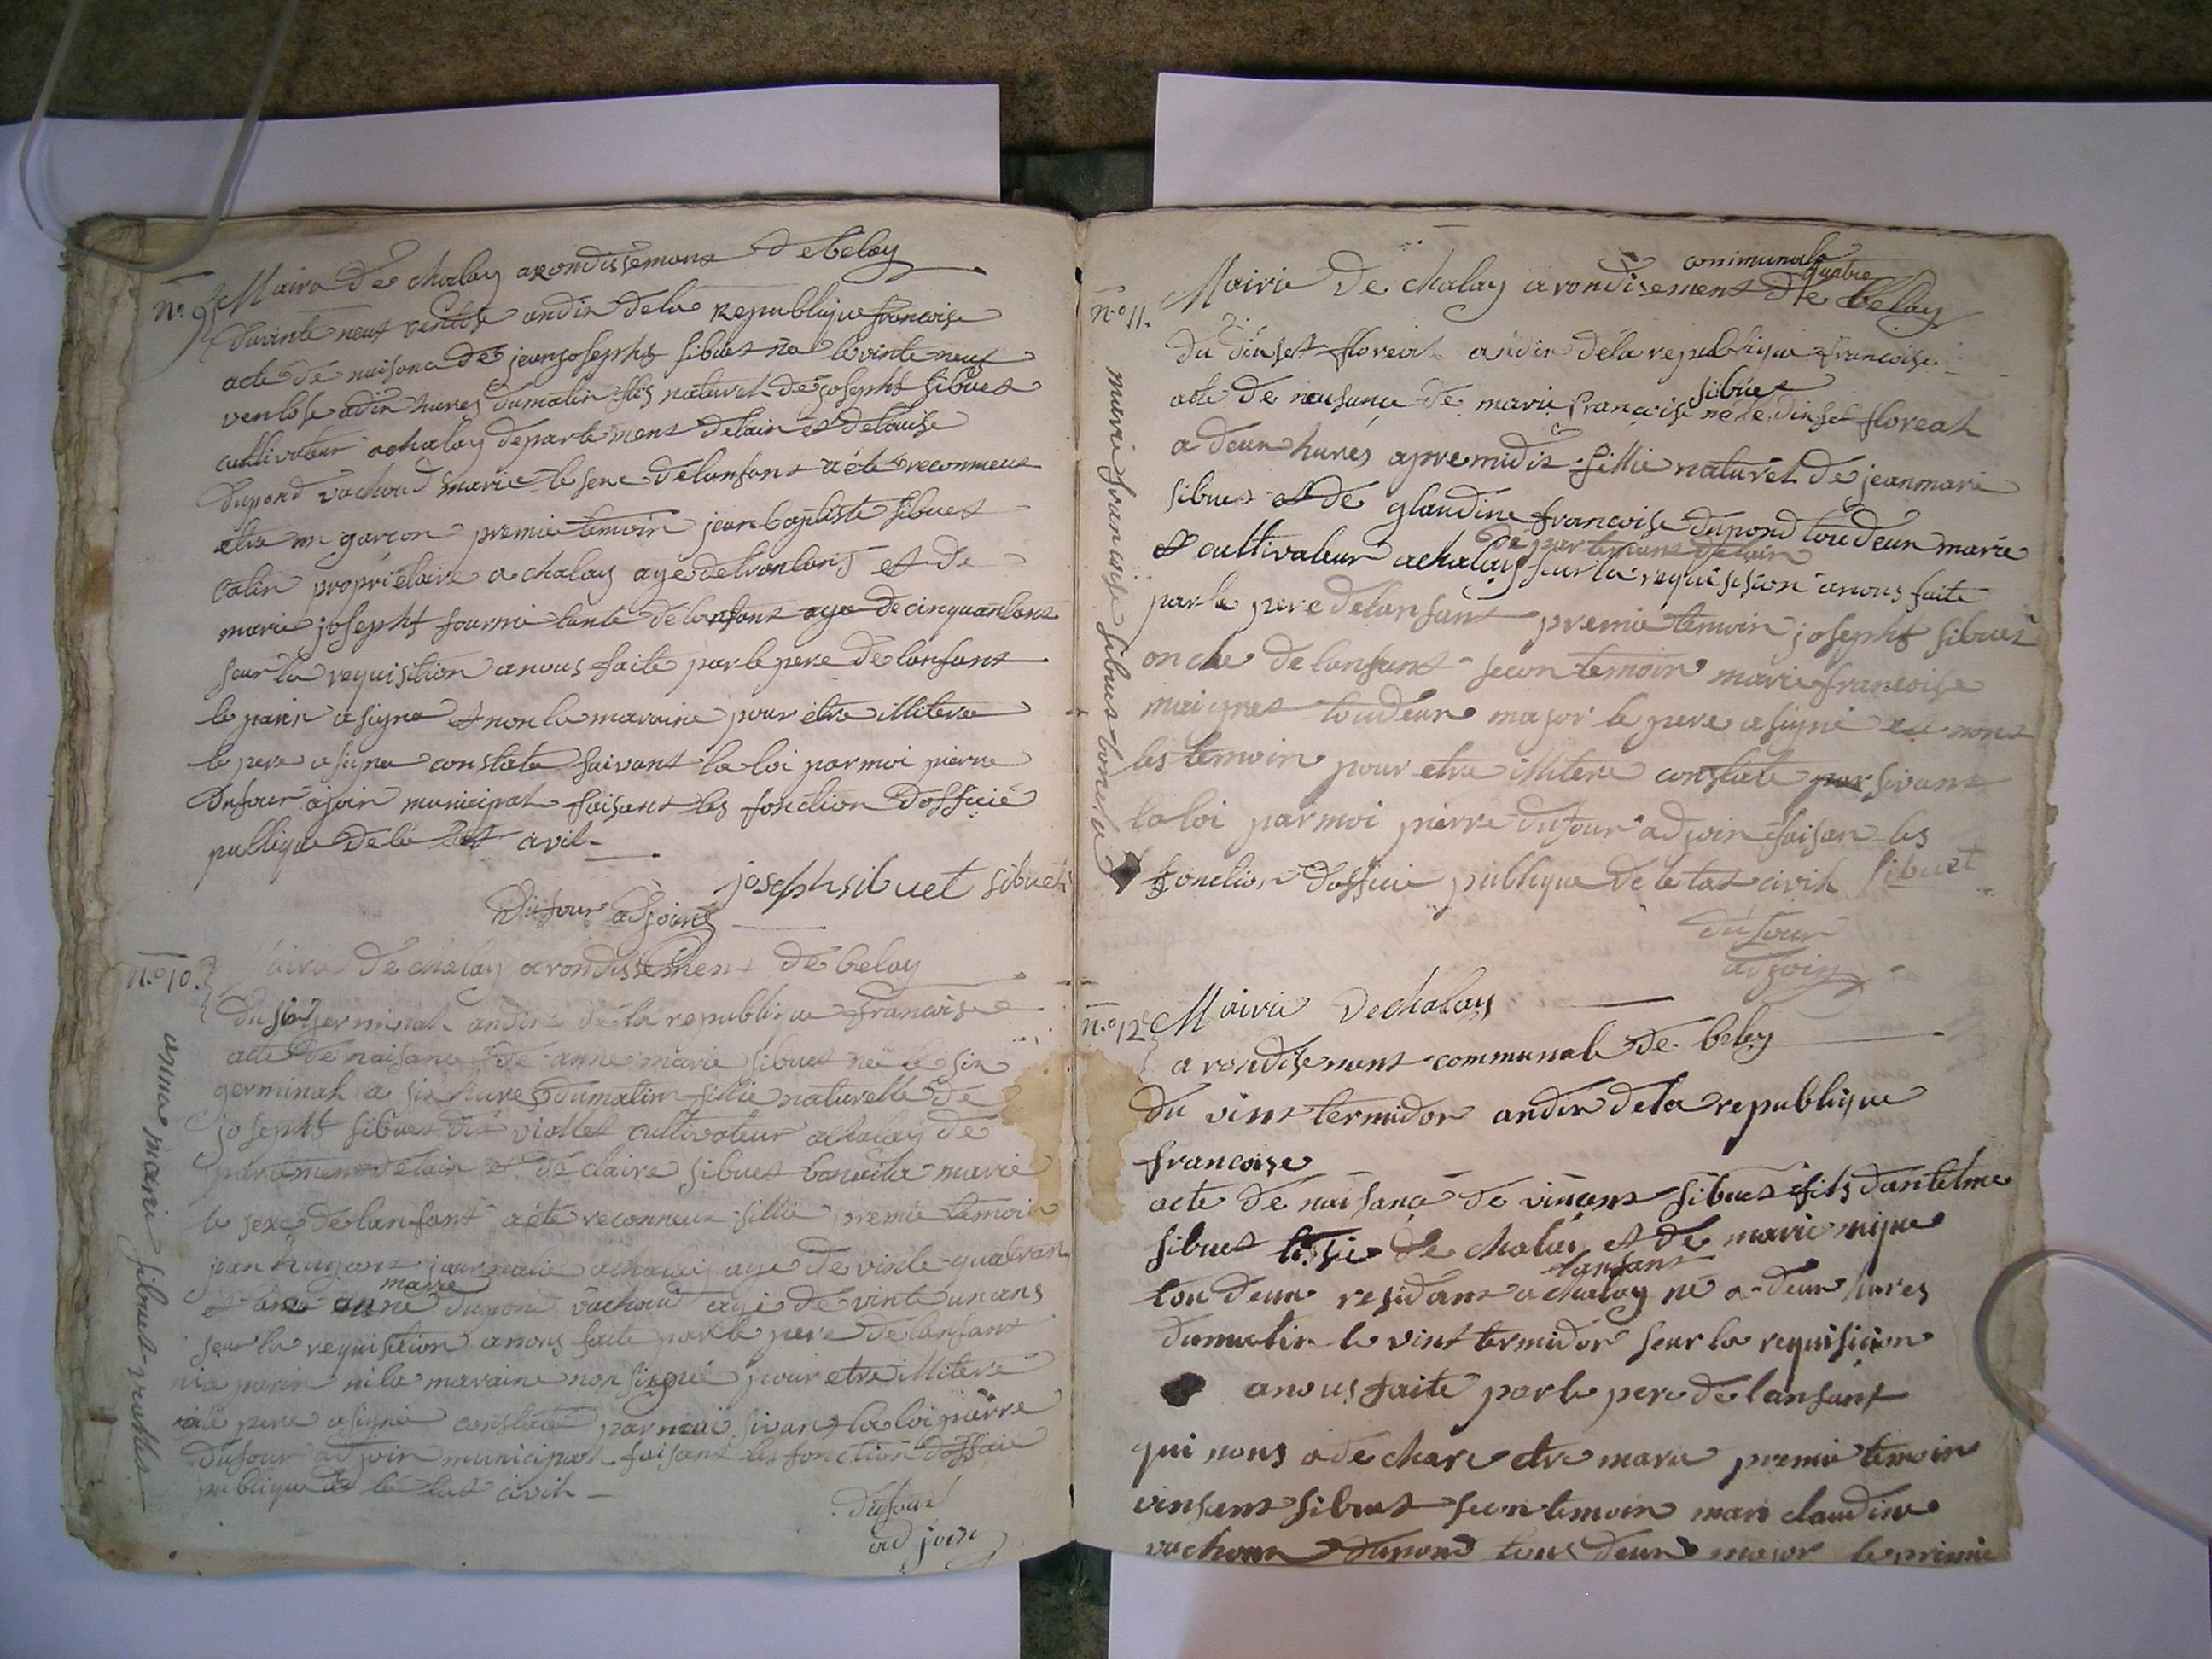 n.º 9 Mairie de chalay arondissemans de belay
du vinte neuf ventose an dix de la republique francoise
acte de naisance de jean josepht sibuet né le vinte neuf
ventose a dix hures du matin fils naturel de josepht sibuet
cultivateur a chalay departement de lain et de louise
dupond vachoud marié le sexe de lanfant a été reconneus
etre un garcon premie temoin jean baptiste sibuet
propriétaire a chalay age de et de
marie josepht fournié tante de lanfans age de cinquantans
seur la requisition a nous faite par le pere de lanfans
le parin a signe et non la maraine pour etre illitere
le pere a signe constate suivant la loi par moi pierre
Dufour ajoin municipal faisant les fonction doffície
pullique de lé tat civil
joseph sibuet sibuet
Dufour adjoint
n.º 10 Mairie de chalay arondissemens de belay
du six germinal an dix de la republique francoise
acte de naisance de anne marie sibuet neé le six
germinal a six hures du matin fillie naturelle de
josepht sibuet dit viollet cultivateur a chalay dé
partemens de lain et de claire sibuet marié
le sexe de lanfant a éte reconneu fillie premié temoin
jean journalié a age de vinte quatrans
et anne marie dupond vachoud agé de vinte un ans
seur la requisition a nous faite par le pere de lanfans
ni le parin ni la maraine non signé pour etre illitere
le pere a signé constaté par moi sivant la loi pierre
Dufour adjoin municipal faisant les fonction doffície
publique de lé tat civil
Dufour
adjoin
anne marie sibuet viollet
n.º 11. Mairie de chalay arondisement communale quatre de belay
du dix set floreal an dix de la republique francoise
acte de naisance de marie francoise sibuet né le dix set floreal
a deux hures apre midis fillie naturel de jean marie
sibuet et de glaudine francoise dupond tou deux marie
et cultivateur a chalay departemans de lain seur la requisision a nous faite
par le pere de lanfant premie temoin josepht sibuet
oncle de lanfant secon temoin marie francoise
maigret tou deux major le pere a signé et nont
les temoin pour etre illitere constate par sivant
la loi par moi pierre dufour adjoin faisan les
fonction doffície publique de le tat civil sibuet
dufour
adjoin
marie francoise sibuet
n.º 12 Mairie de chalay
arondisement communale de beley
du vint termidor an dix de la republique
francoise
acte de naisance de vincans sibuet fils dantelme
sibuet de chalai et de marie
tou deux residans a chalay lanfans né a deux hures
du matin le vint termidor seur la requisicion
a nous faite par le pere de lanfans
qui nous a de clare etre marie premie temoin
vinsans sibuet secon temoin mari claudine
vachoux dupond tous deux major le premie